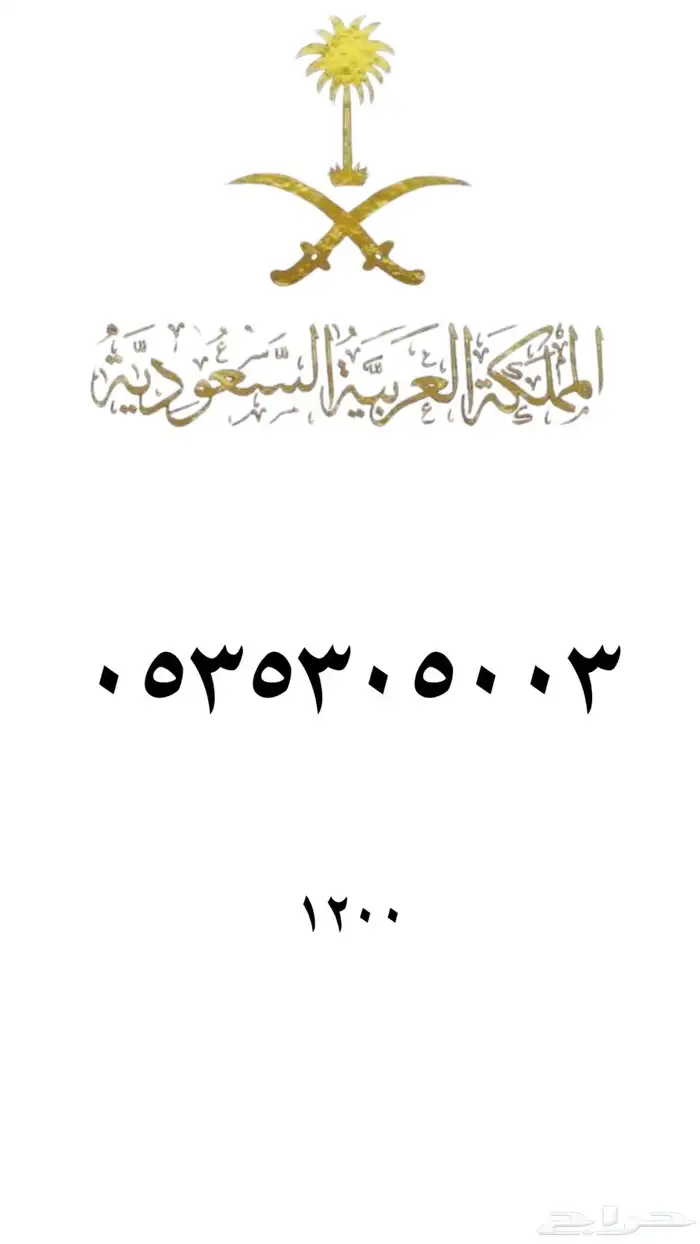 المملكة العربية السعودية
٠٥٣٥٣٠٥٠٠٣
١٢٠٠
حراج